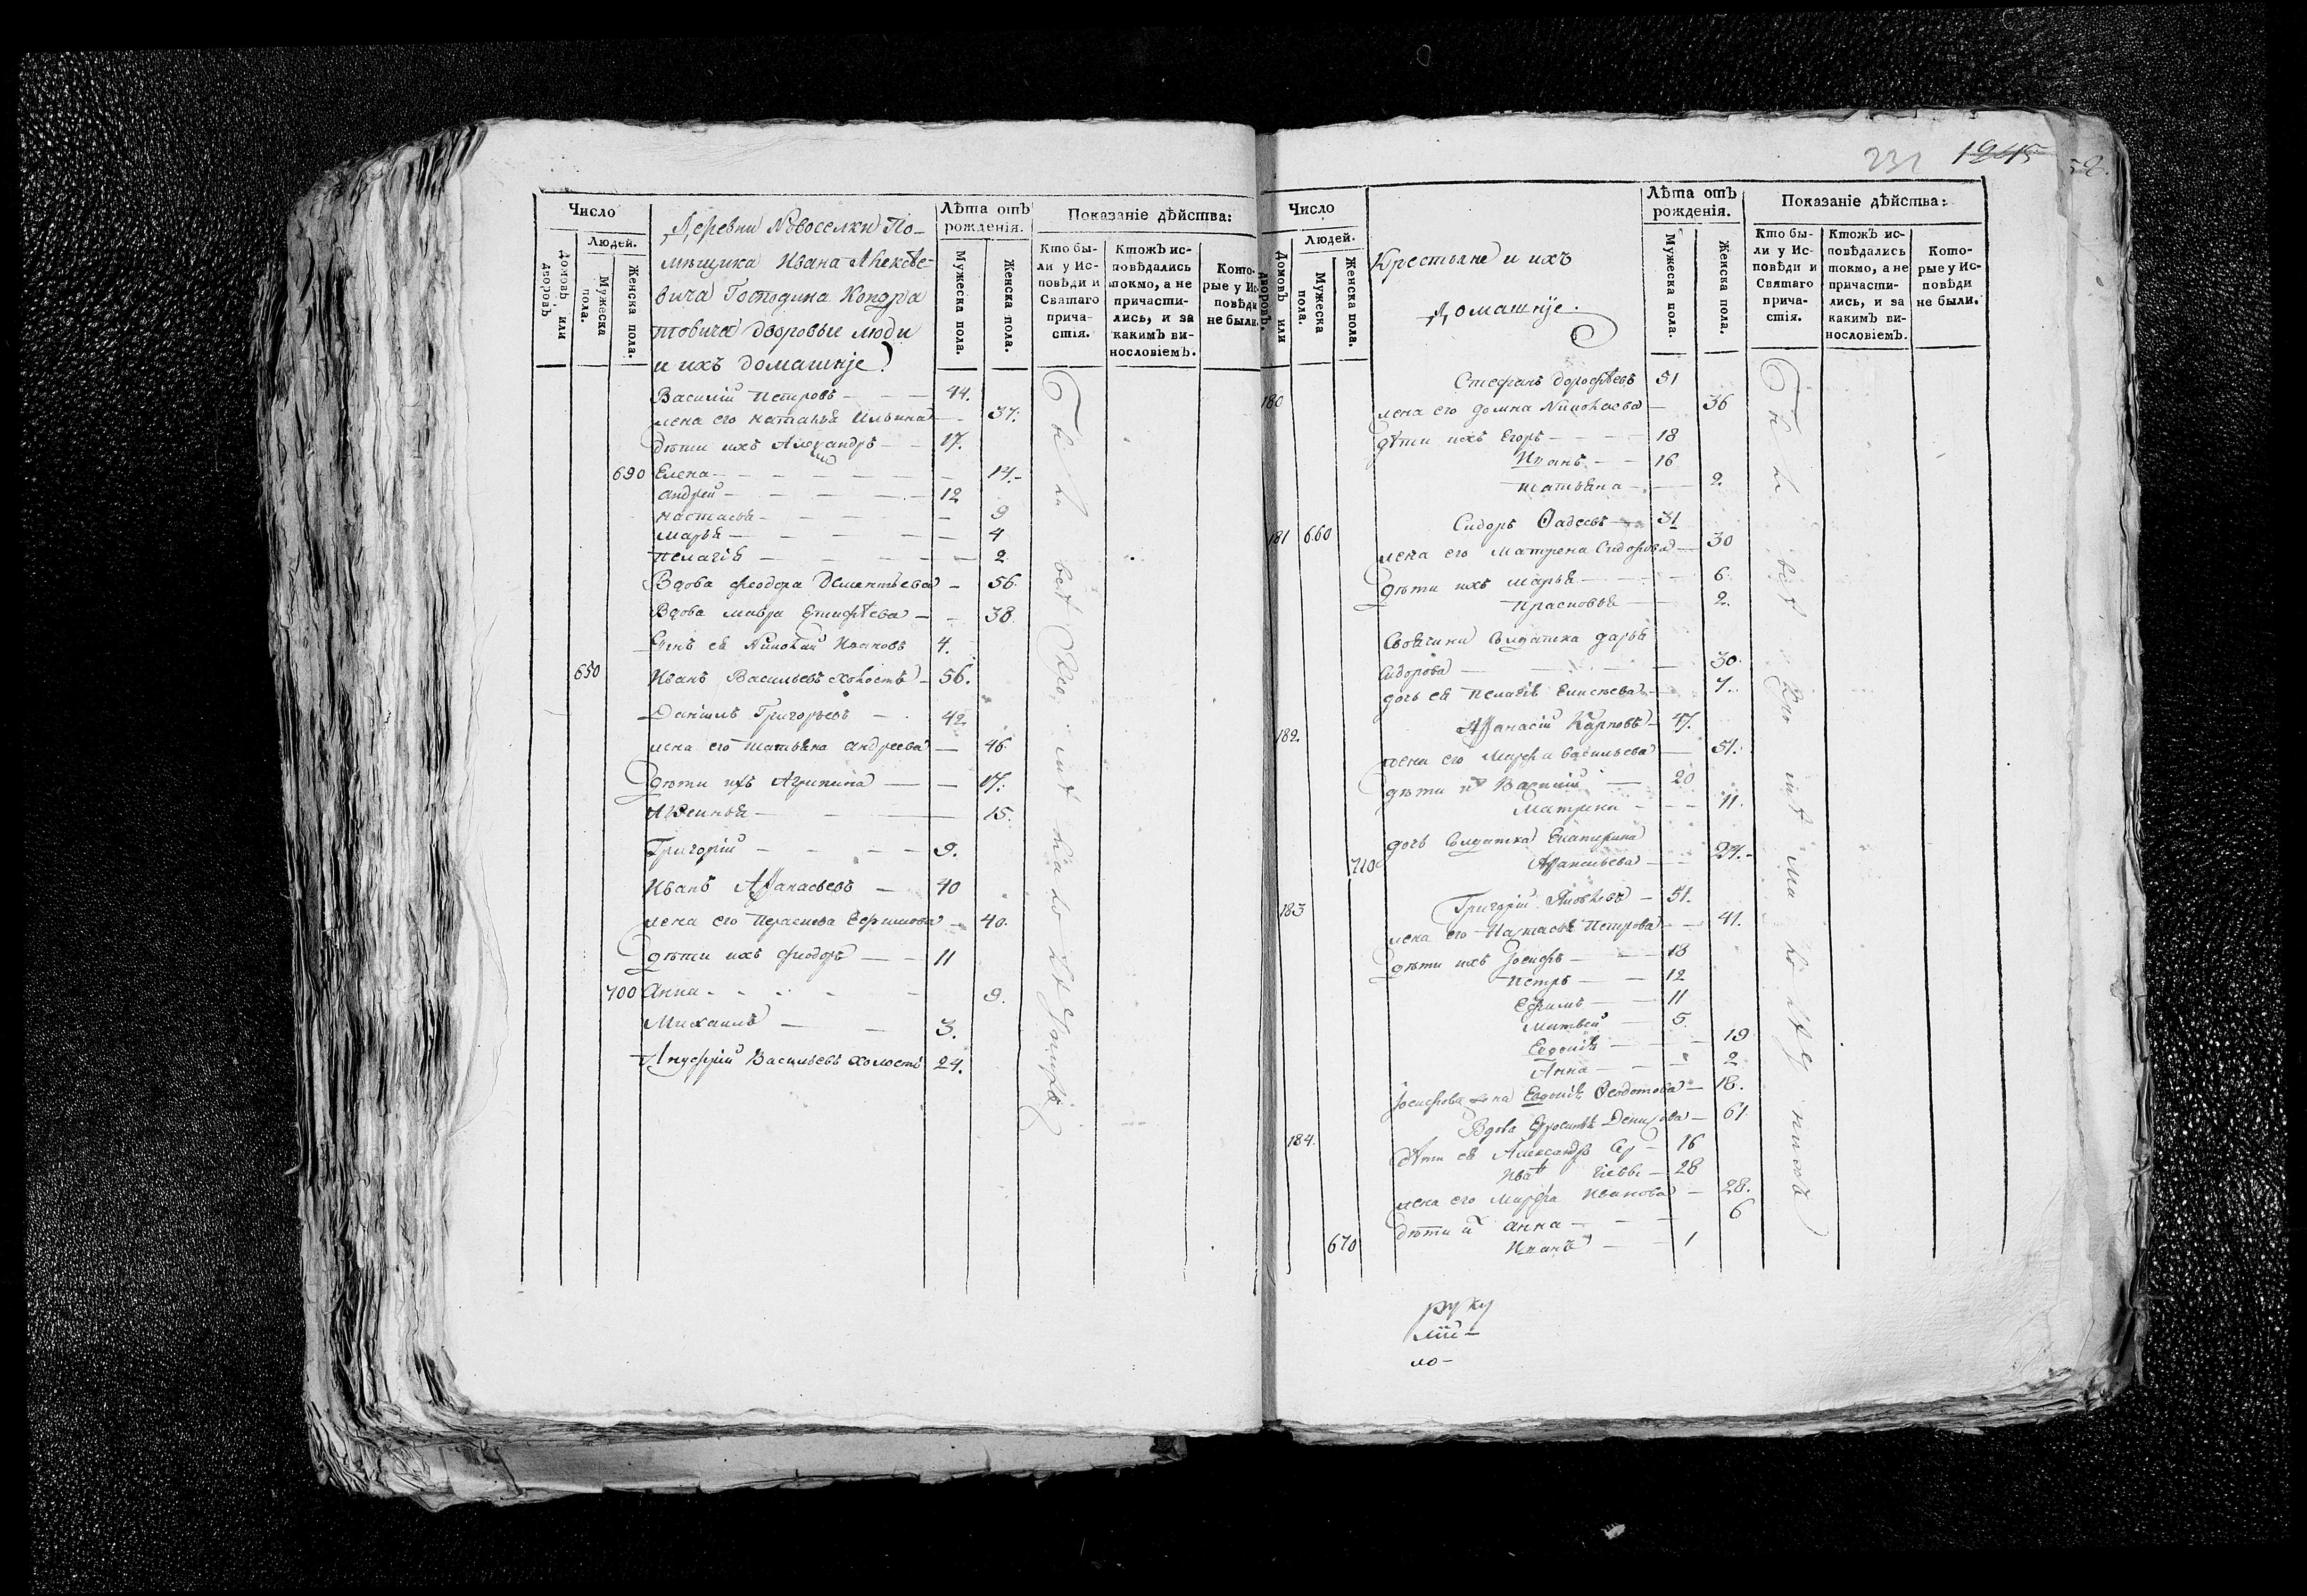 Число
Людей.
Домовъ или дворовъ.
Мужеска пола.
Женска пола.
Деревни Новоселки По-
мѣщика Ивана Алексѣе-
вича Господина Кондра
товича дворовые люди
и ихъ домашніе
Лѣта отъ рожденія.
Мужеска пола.
Женска пола.
Показаніе дѣйства:
Кто бы-
ли у Ис-
повѣди и
Святаго
прича-
стія.
Ктожъ ис-
повѣдались
токмо, а не
причасти-
лись, и за
какимъ ви-
нословіемъ.
Кото-
рые у Ис-
повѣди
не были.
Василій Петровъ 44.
жена его Наталья Ильина 37.
дѣти ихъ Александръ 17.
690 Елена 14.
Андрей 12
Настасья 9
Марья 4
Пелагія 2
Вдова Феодора Дементьева 56.
Вдова Мавра Епифѣева 38
Сынъ ея Николай Ивановъ 4.
650 Иванъ Васильевъ холостъ 56.
Данилъ Григорьевъ 42
жена его Татьяна Андреева 46
дѣти ихъ Агрипина 17.
Аксинья 15.
Григорій 9.
Иванъ Афанасьевъ 40
жена его Ефимова 40.
дѣти ихъ Феодоръ 11
700 Анна 9.
Михаилъ 3.
Ануфрій Васильевъ холостъ 24.
232 1245 58.
Число
Людей.
Домовъ или дворовъ.
Мужеска пола.
Женска пола.
Крестьяне и ихъ
домашніе.
Лѣта отъ рожденія.
Мужеска пола.
Женска пола.
Показаніе дѣйства:
Кто бы-
ли у Ис-
повѣди и
Святаго
прича-
стія.
Ктожъ ис-
повѣдались
токмо, а не
причасти-
лись, и за
какимъ ви-
нословіемъ.
Кото-
рые у Ис-
повѣди
не были.
180 Стефанъ Дорофѣевъ 51
жена его Домна Николаева 36
дѣти ихъ Егоръ 18
Иванъ 16
Татьяна 2.
181 660 Сидоръ Ѳадеевъ 31
жена его Матрена Сидорова 30
дѣти ихъ Марья 6.
Прасковья 2.
Своячина Солдатка Дарья
Сидорова 30.
дочь ея Пелагѣя Елисеева 7.
182. Афанасій Карповъ 47.
жена его Марфа Васильева 51.
дѣти их Василій 20
Матрена 11.
дочь Солдатка Екатерина
710 Афанасьева 27.
183 Григорій Яковлевъ 51.
жена его Настасья Петрова 41.
дѣти ихъ Іосифъ 18
Петръ 12
Ефимъ 11
Матвей 5.
Евдокія 19
Анна 2
Іосифова жена Евдокія Ѳеодотова 18.
184. Вдова Ефросинья Денисова 61
дѣти ея Александръ 16
28
жена его Марфа Иванова 28.
дѣти их Анна 6
670 Иванъ 1
руку
ло-